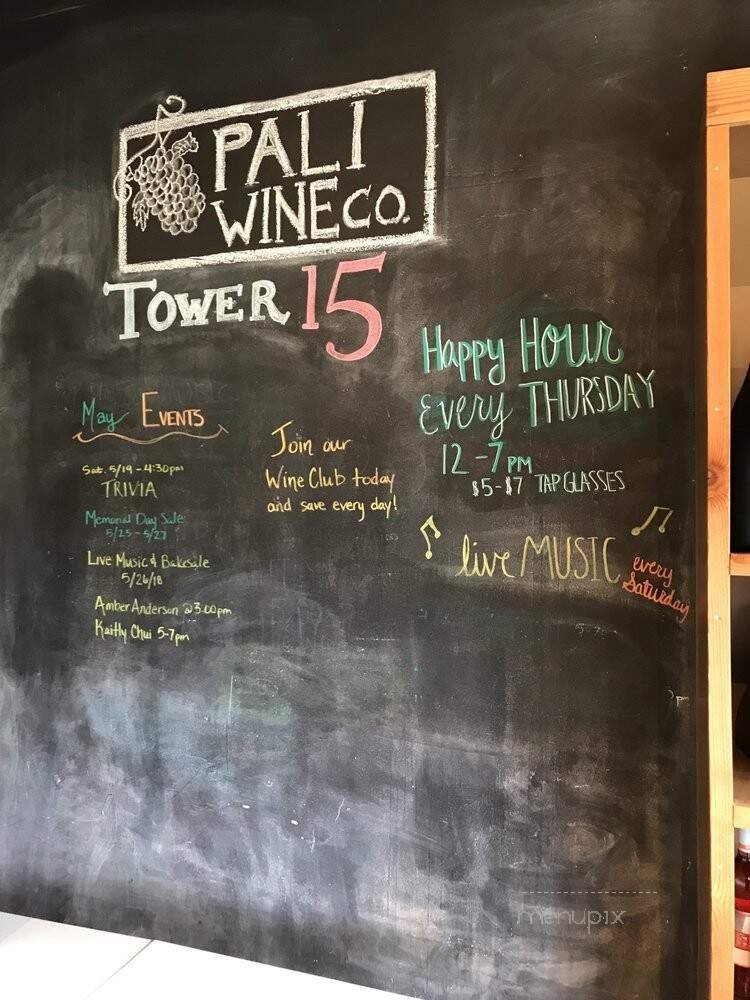 PALI
WINE CO.
TOWER 15
May EVENTS
Sat. 5/19 - 4:30pm
TRIVIA
Memorial Day Sale
5/25 - 5/27
Live Music & Bakesale
5/26/18
Amber Anderson @ 3:00pm
Kaitly Chui 5-7pm
Join our
Wine Club today
and save every day!
Happy Hour
Every THURSDAY
12 - 7 PM
$5 - $7 TAP GLASSES
live MUSIC every
Saturday
menupix